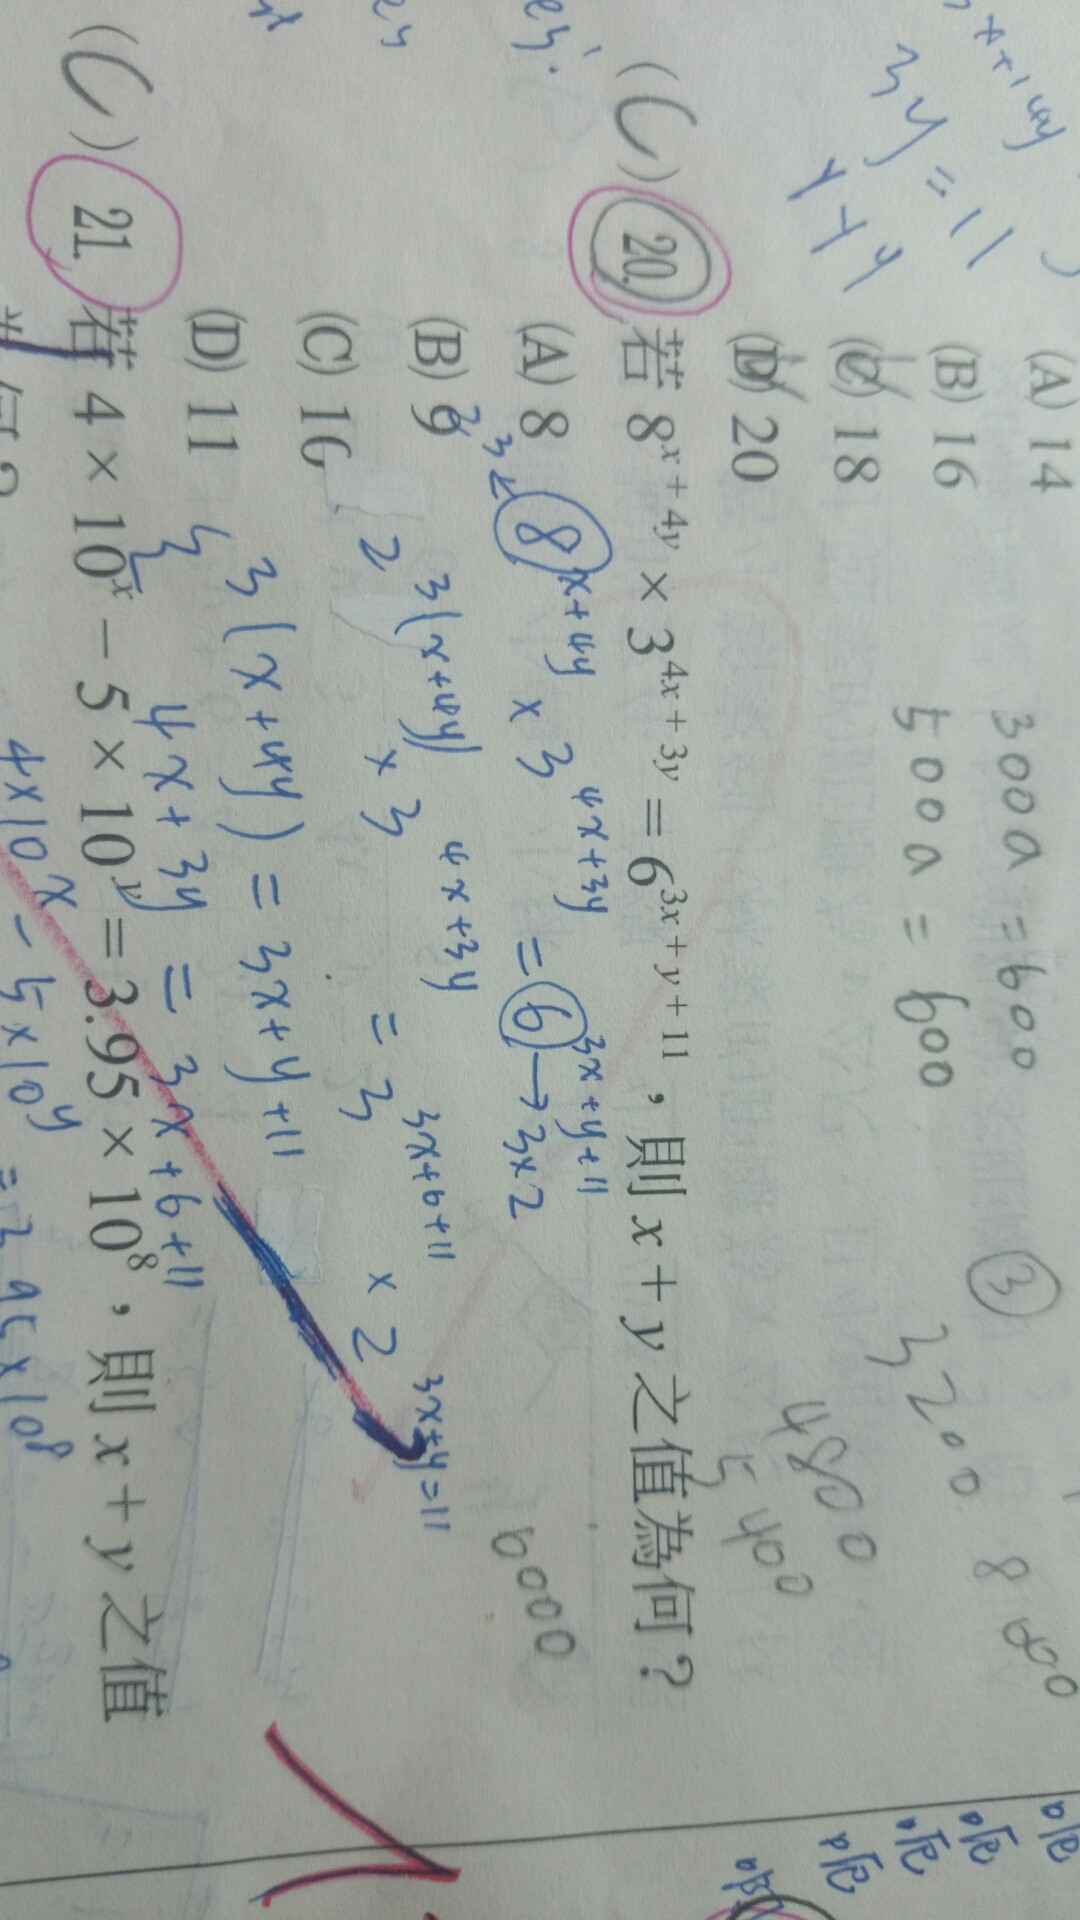 x+14y
3y=11
(A) 14
(B) 16
(C) 18
(D) 20
300a=600
500a=600
③
3200
800
4800
5400
6000
(C) 20. 若 8^{x+4y} × 3^{4x+3y} = 6^{3x+y+11},則 x+y 之值為何?
(A) 8
(B) 9
(C) 16
(D) 11
2^3 ← 8^{x+4y} × 3^{4x+3y} = 6^{3x+y+11} → 3×2
2^{3(x+4y)} × 3^{4x+3y} = 3^{3x+6+11} × 2^{3x+y=11}
{ 3(x+4y) = 3x+y+11
4x+3y = 3x+6+11
(C) 21. 若 4 × 10^x − 5 × 10^y = 3.95 × 10^8,則 x+y 之值
4×10^x − 5×10^y = 3.95×10^8